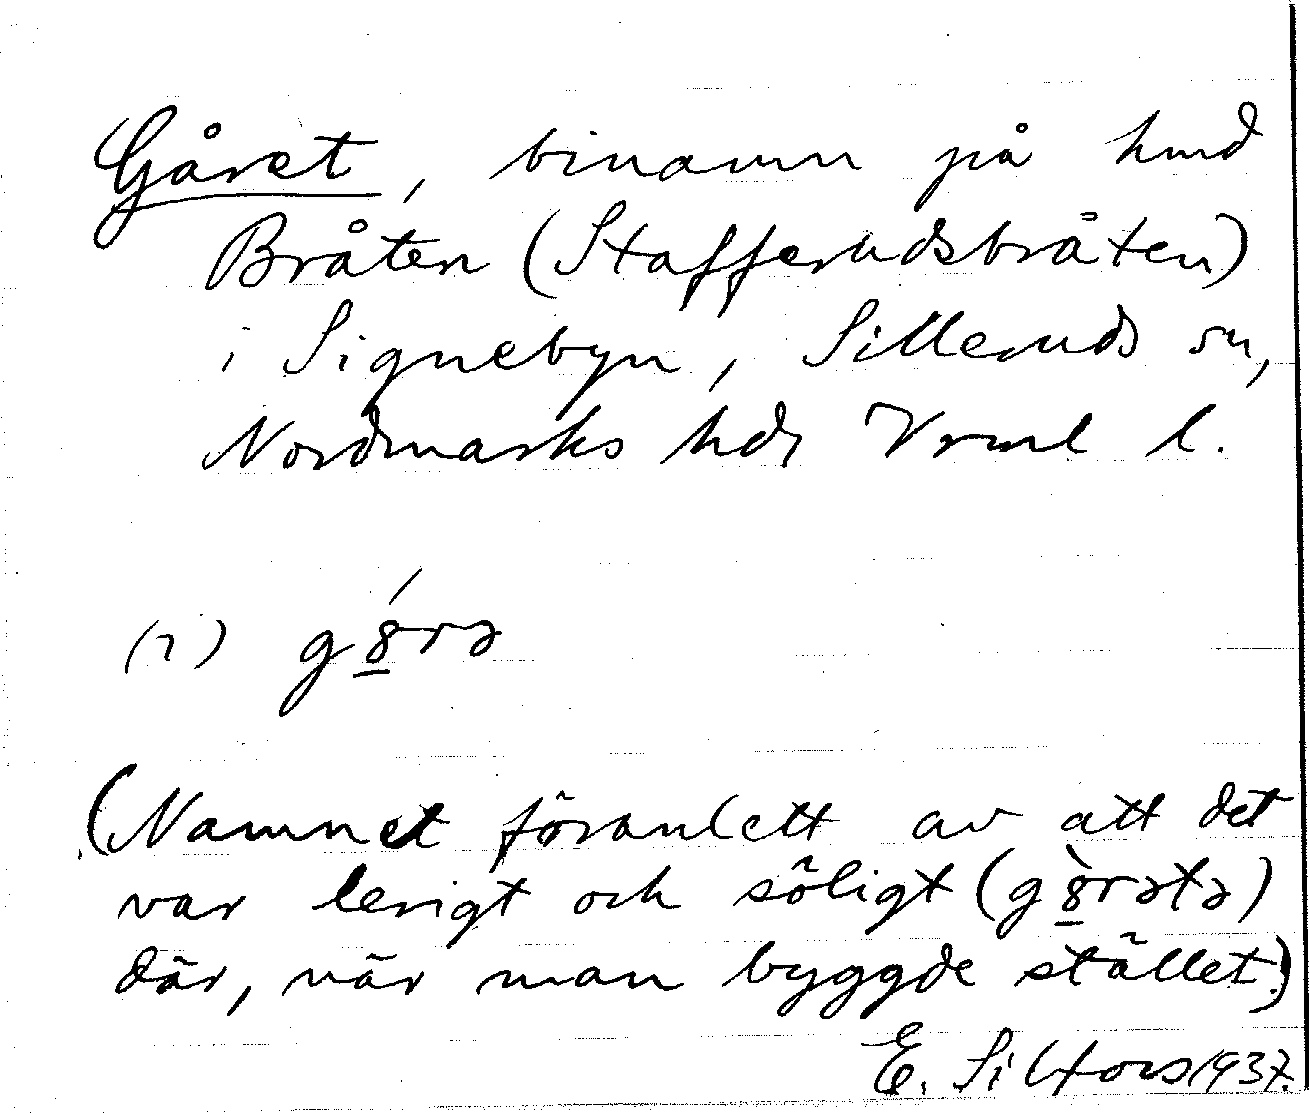 Gåret, binamn på hmd
Bråten (Stafferudsbråten)
i Signebyn, Silleruds sn,
Nordmarks hdr Vrml l.
(i) gȣ́rə
(Namnet föranlett av att det
var lerigt och söligt (gȣ̀rətə)
där, när man byggde stället.)
E. Siltors 1937.